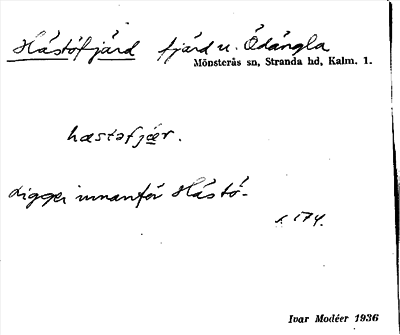 Håstöfjärd fjärd u. Ödängla
Mönsterås sn, Stranda hd, Kalm. l.
hæstəfjær.
Ligger innanför Håstö-
s. 174.
Ivar Modéer 1936